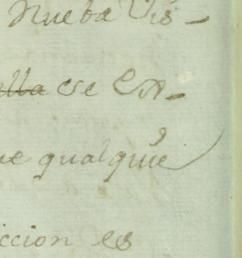 Nueba Vis-
ese Ex-
ue qualquie
ccion es